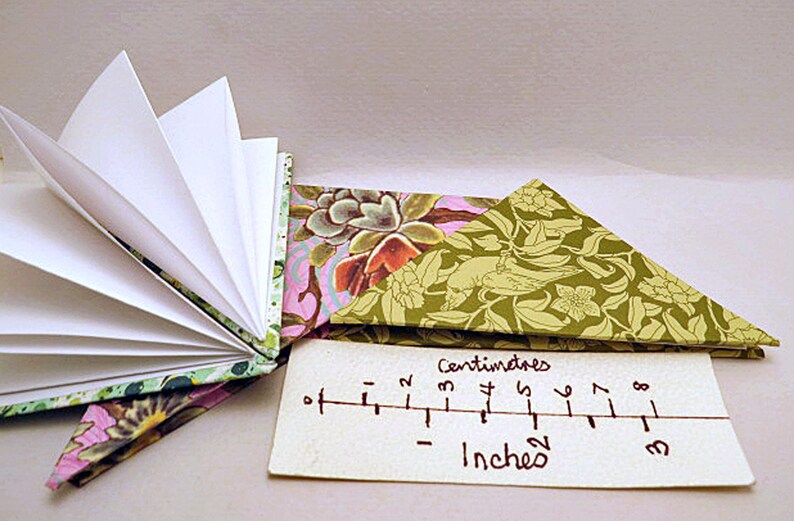 Centimetres
0 1 2 3 4 5 6 7 8
1 2 3
Inches